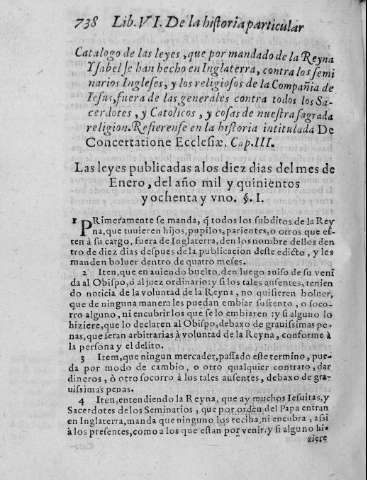 738 Lib. VI. De la historia particular
Catalogo de las leyes, que por mandado de la Reyna
Ysabel se han hecho en Inglaterra, contra los semi
narios Ingleses, y los religiosos de la Compañia de
Iesus, fuera de las generales contra todos los Sa-
cerdotes, y Catolicos, y cosas de nuestra sagrada
religion. Refierense en la historia intitulada De
Concertatione Ecclesiæ. Cap. III.
Las leyes publicadas a los diez dias del mes de
Enero, del año mil y quinientos
y ochenta y vno. §. I.
1 PRimeramente se manda, q̃ todos los subditos de la Rey
na, que tuuieren hijos, pupilos, parientes, o otros que es-
ten à su cargo, fuera de Inglaterra, den los nombre dellos den
tro de diez dias despues de la publicacion deste edicto, y les
manden boluer dentro de quatro meses.
2 Iten, que en auiendo buelto, den luego auiso de su veni
da al Obispo, ò al juez ordinario; y si los tales ausentes, tenien
do noticia de la voluntad de la Reyna, no quisieren boluer,
que de ninguna manera les puedan embiar sustento, o soco-
rro alguno, ni encubrir los que se lo embiaren: y si alguno lo
hiziere, que lo declaren al Obispo, debaxo de grauissimas pe-
nas, que seran arbitrarias à voluntad de la Reyna, conforme à
la persona y el delito.
3 Item, que ningun mercader, passado este termino, pue-
da por modo de cambio, o otro qualquier contrato, dar
dineros, ò otro socorro à los tales ausentes, debaxo de gra-
uissimas penas.
4 Iten, entendiendo la Reyna, que ay muchos Iesuitas, y
Sacerdotes de los Seminarios, que por orden del Papa entran
en Inglaterra, manda que ninguno los reciba, ni encubra, assi
à los presentes, como a los que estan por venir: y si alguno hi-